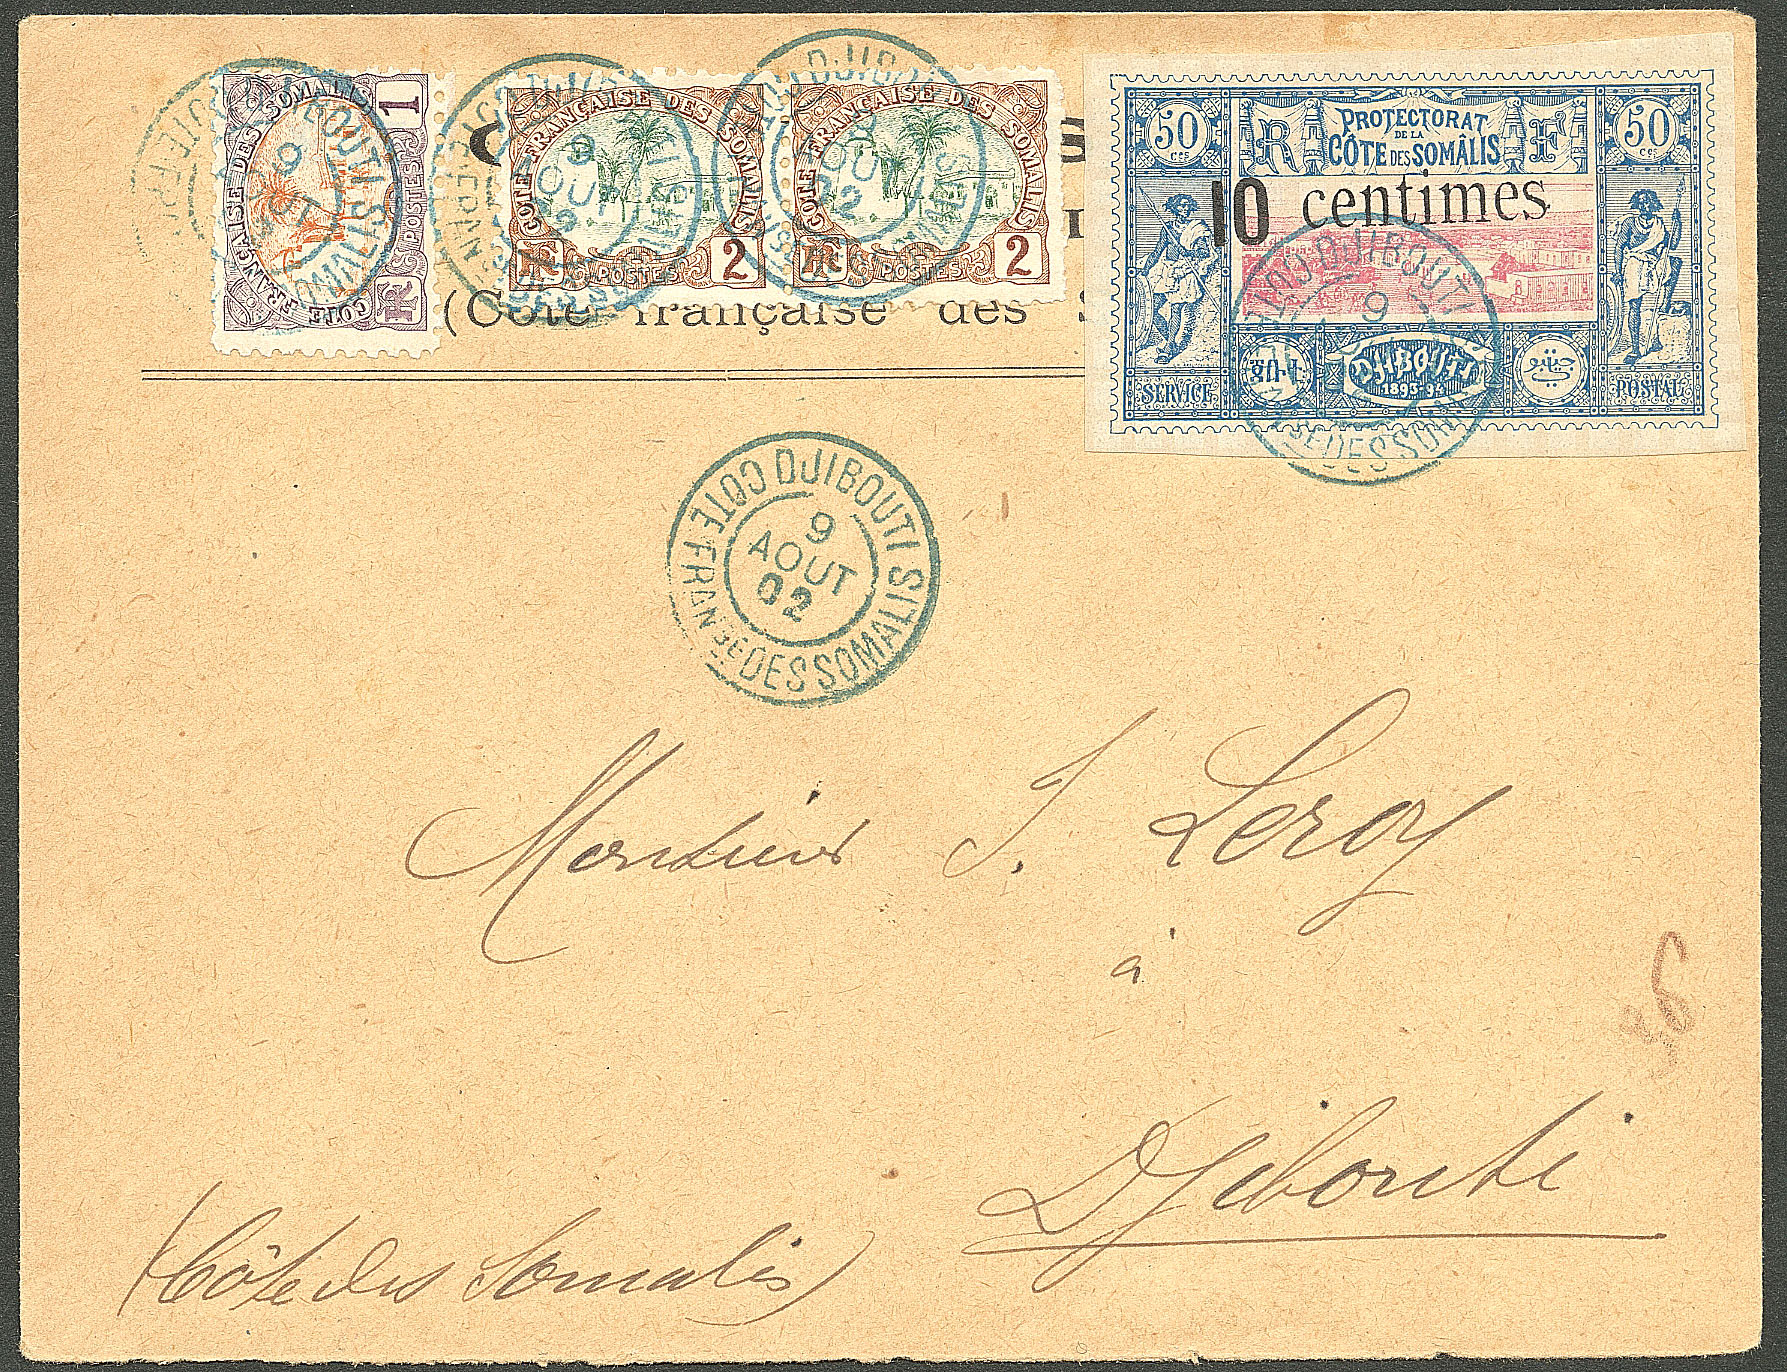 COTE FRANÇAISE DES SOMALIS
1
RF POSTES
COTE FRANÇAISE DES SOMALIS
RF POSTES 2
COTE FRANÇAISE DES SOMALIS
RF POSTES 2
50 CES
50 CES
R F
PROTECTORAT
DE LA
CÔTE DES SOMÂLIS
10 centimes
DJIBOUTI
1893-94
SERVICE
POSTAL
(Côte française des
DJIBOUTI
9
DJIBOUTI SLIS
COTE FRANSE DES SOMALIS
9
AOUT
02
Monsieur J. Leroy
à
Djibouti
(Côte des Somalis)